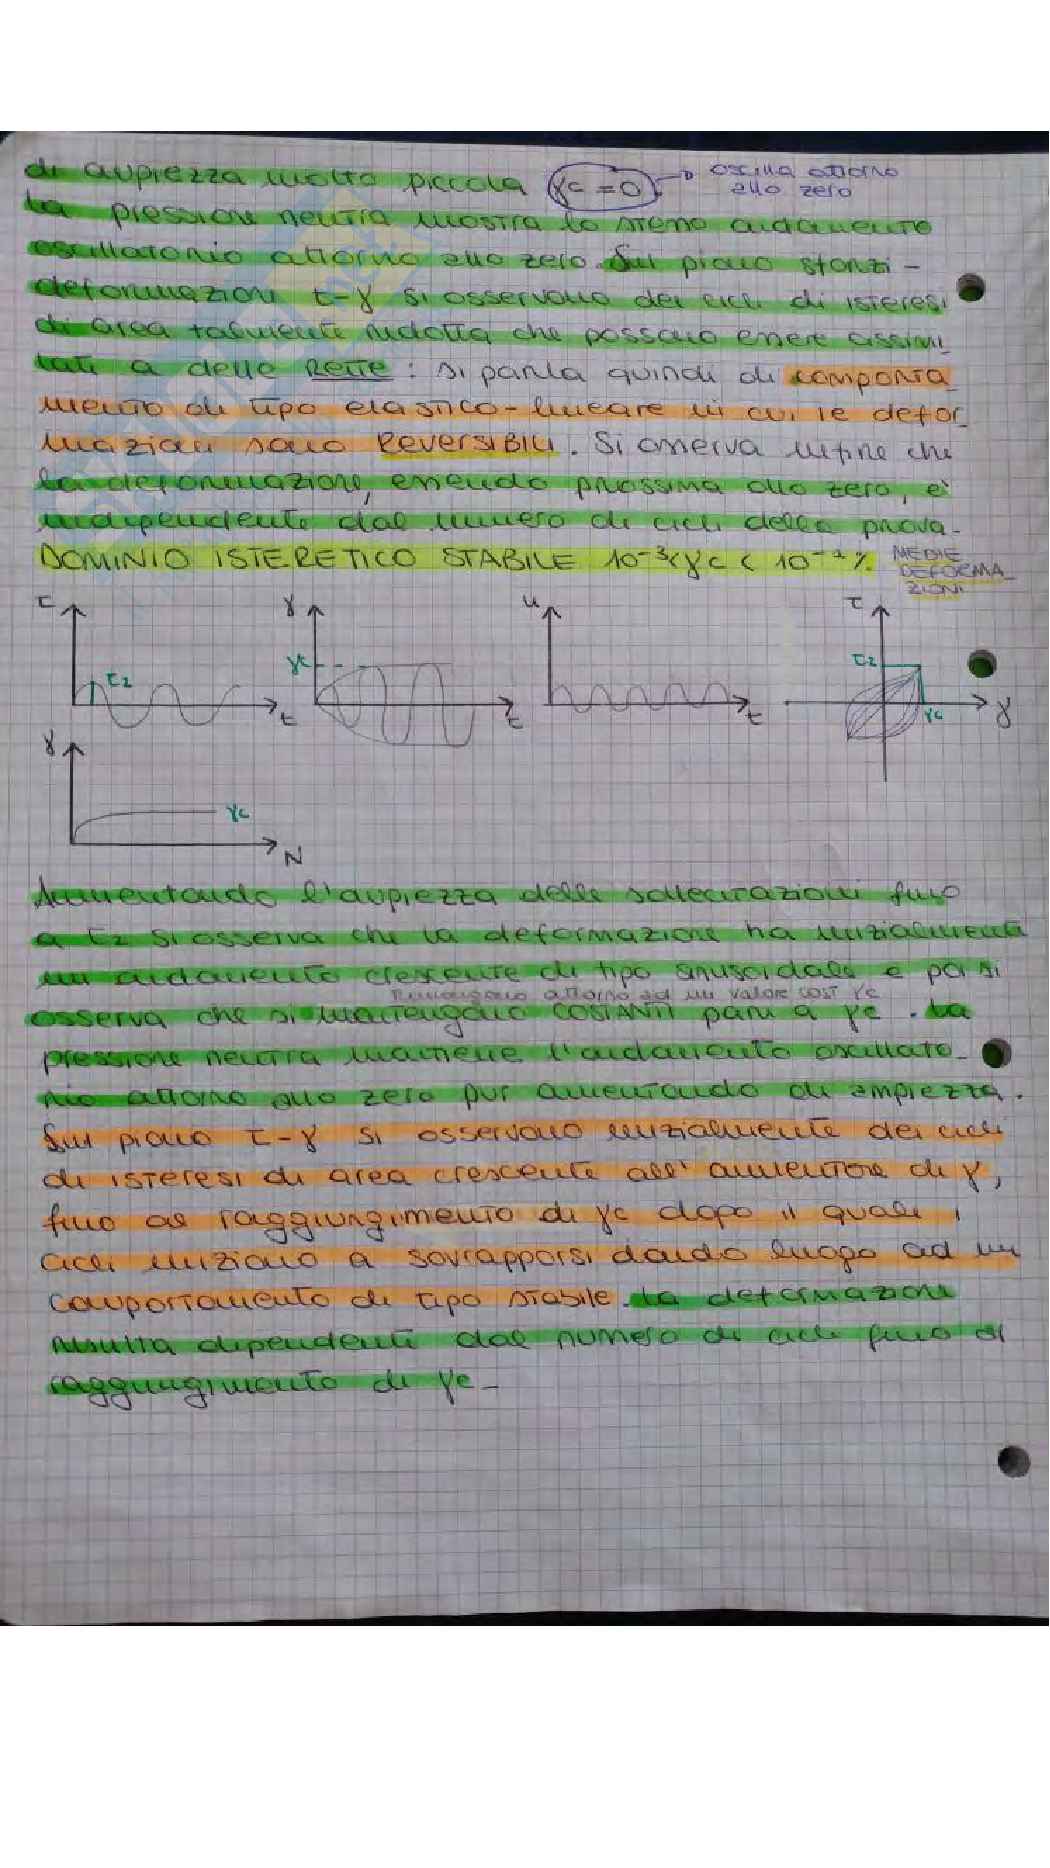 di ampiezza molto piccola (γc = 0) → oscilla attorno
allo zero
La pressione neutra mostra lo stesso andamento
oscillatorio attorno allo zero. Sul piano sforzi-
deformazioni τ-γ si osservano dei cicli di isteresi
di area talmente ridotta che possono essere assimi
lati a delle RETTE : si parla quindi di comporta
mento di tipo elastico-lineare in cui le defor_
mazioni sono REVERSIBILI. Si osserva infine che
la deformazione, essendo prossima allo zero, e'
indipendente dal numero di cicli della prova.
DOMINIO ISTERETICO STABILE 10⁻³<γc<10⁻²%
MEDIE
DEFORMA_
ZIONI
τ γ u τ
τ2 γc τ2
t t t γc γ
γ
γc
N
Aumentando l'ampiezza delle sollecitazioni fino
a τ2 si osserva che la deformazione ha inizialmente
un andamento crescente di tipo sinusoidale e poi si
Rimangono attorno ad un valore cost γc
osserva che si mantengono COSTANTI pari a γc. La
pressione neutra mantiene l'andamento oscillato_
rio attorno allo zero pur aumentando di ampiezza.
Sul piano τ-γ si osservano inizialmente dei cicli
di isteresi di area crescente all'aumentare di γ,
fino al raggiungimento di γc dopo il quale i
cicli iniziano a sovrapporsi dando luogo ad un
comportamento di tipo stabile. La deformazione
risulta dipendente dal numero di cicli fino al
raggiungimento di γc_